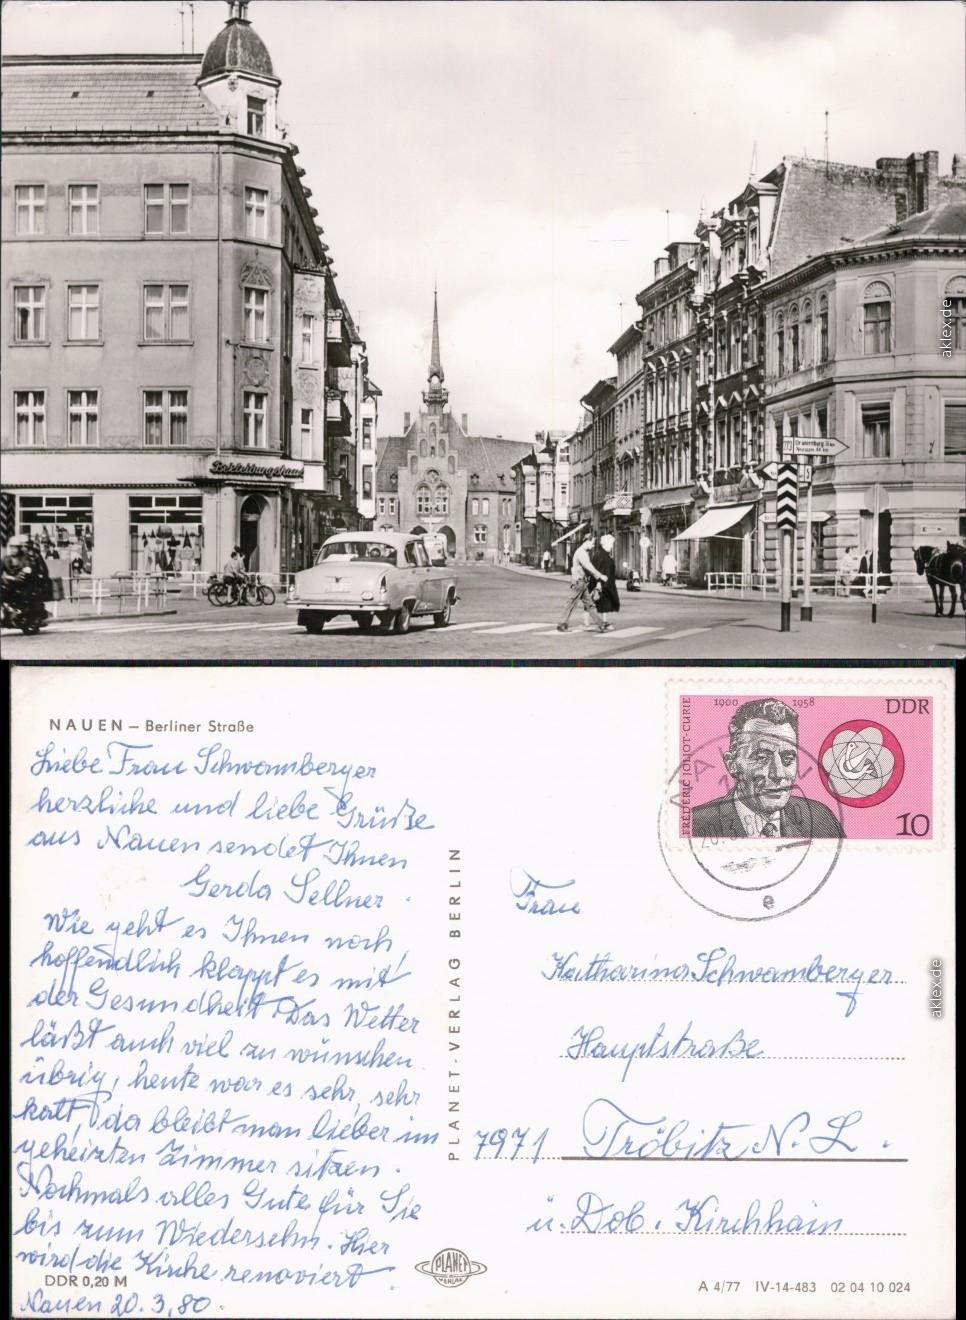 Bekleidungshaus
Oranienburg
aklex.de
NAUEN – Berliner Straße
Liebe Frau Schwamberger
herzliche und liebe Grüße
aus Nauen sendet Ihnen
Gerda Sellner.
Wie geht es Ihnen noch,
hoffendlich klappt es mit
der Gesundheit. Das Wetter
läßt auch viel zu wünschen
übrig, heute war es sehr, sehr
kalt, da bleibt man lieber im
geheizten Zimmer sitzen.
Nochmals alles Gute für Sie
bis zum Wiedersehn. Hier
wird die Kirche renoviert.
DDR 0,20 M
Nauen 20.3.80.
PLANET-VERLAG BERLIN
FRÉDÉRIC JOLIOT-CURIE
1900 1958
DDR
10
e
Frau
Katharina Schwamberger
Hauptstraße
7971 Tröbitz N. L.
ü. Dob. Kirchhain
PLANET
VERLAG
A 4/77 IV-14-483 02 04 10 024
aklex.de